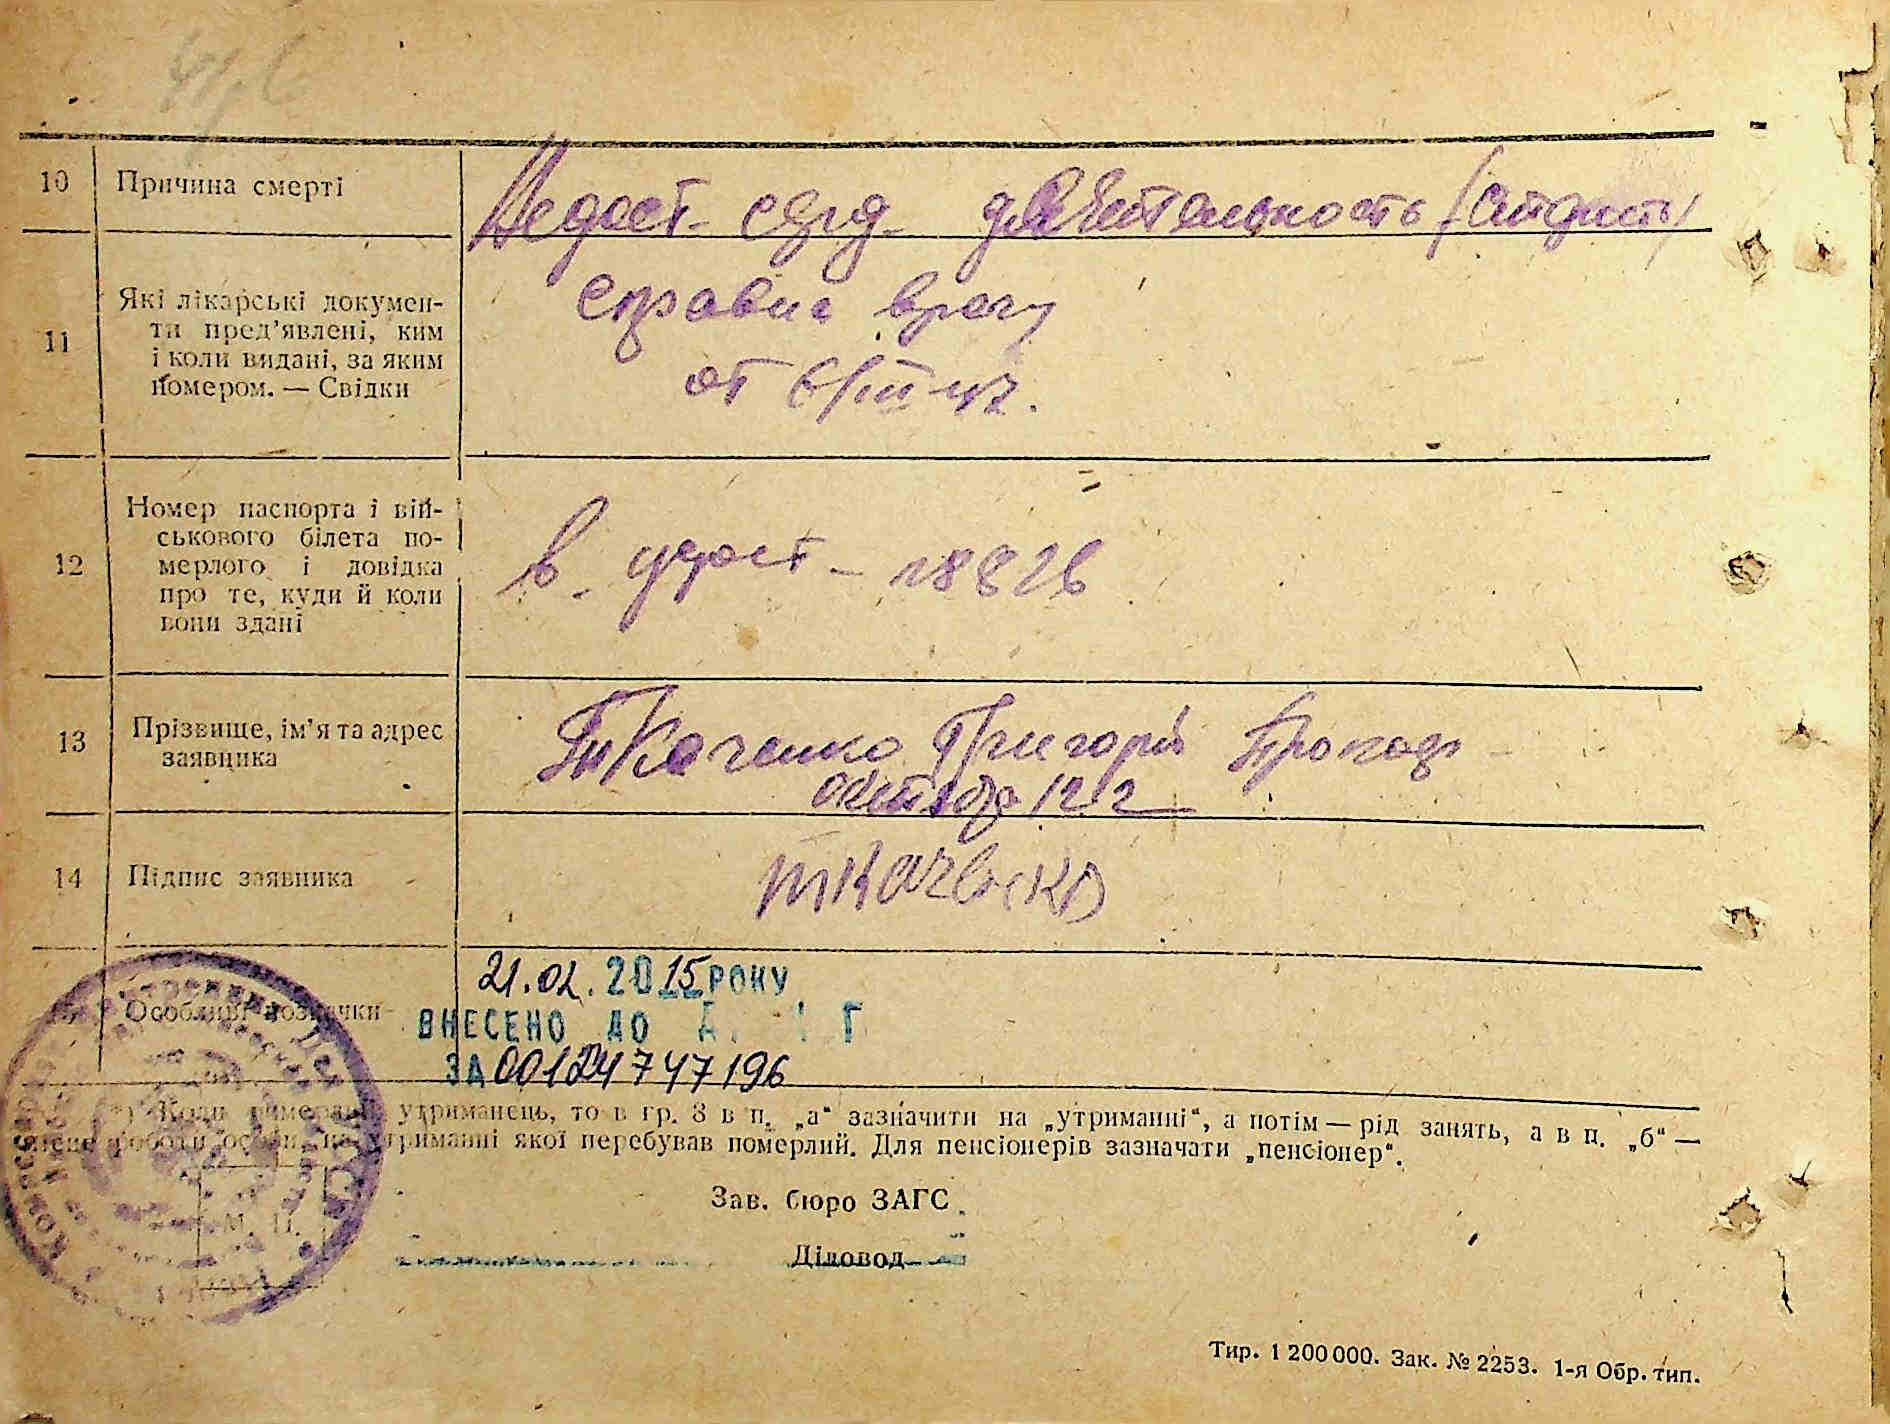 10 Причина смерті
Недост. серд. деятельность (старость)
11 Які лікарські докумен-
ти пред’явлені, ким
і коли видані, за яким
номером. — Свідки
справка врачу
от 6/III
12 Номер паспорта і вій-
ськового білета по-
мерлого і довідка
про те, куди й коли
вони здані
в. удост - 18826
13 Прізвище, ім’я та адрес
заявника
Ткаченко Григорий Прокоф
октября 122
14 Підпис заявника
ткаченко
Особливі позначки
21.02.2015 РОКУ
ВНЕСЕНО ДО Д Г
ЗА 00124747196
*) Коли померлий утриманець, то в гр. 8 в п. „а“ зазначити на „утриманні“, а потім — рід занять, а в п. „б“ —
місце роботи особи, на утриманні якої перебував померлий. Для пенсіонерів зазначати „пенсіонер“.
М. П.
Зав. бюро ЗАГС
Діловод
Тир. 1 200 000. Зак. № 2253. 1-я Обр. тип.